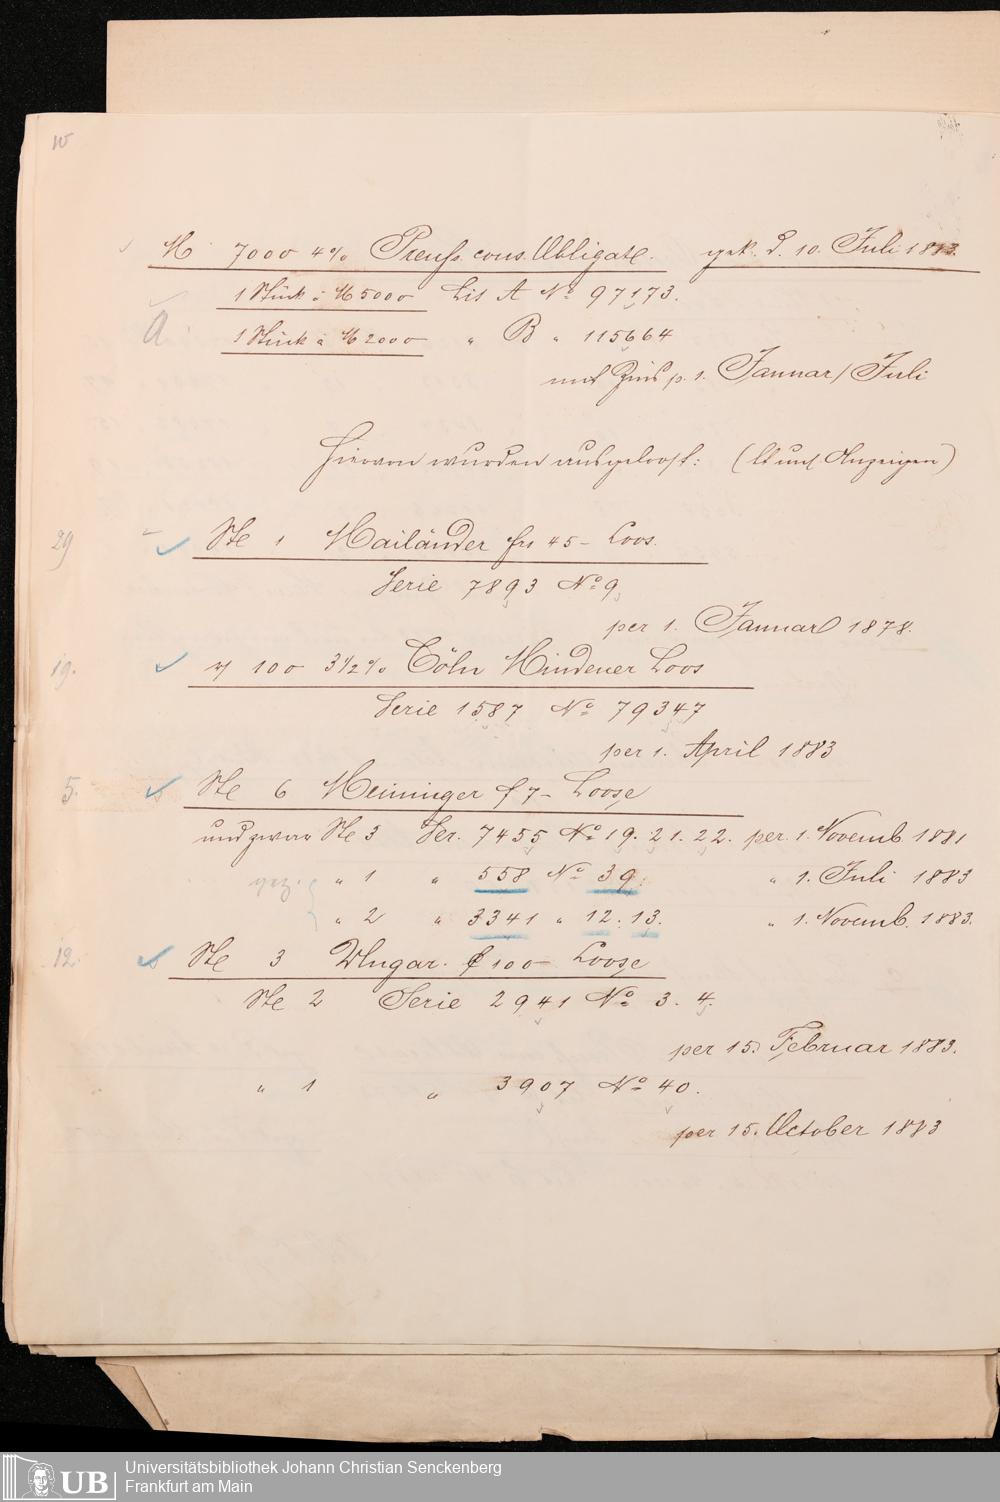 M 7000 4% Preuß. cons. Obligat. gek. d. 10. Juli 1883.
1 Stück à M 5000 Lit A No 97173.
1 Stück à M 2000 " B " 115664
mit Zins p. 1. Januar/Juli
Hiervon wurden ausgeloost: (lt uns. Anzeigen)
29 Ste 1 Mailänder frs 45 – Loos.
Serie 7893 No 9.
per 1. Januar 1878.
19. 100 3 1/2 % Cöln Mindener Loos
Serie 1587 No 79347
per 1. April 1883
5. Ste 6 Meininger f 7 – Loose
und zwar Ste 3 Ser. 7455 No 19. 21. 22. per 1. Novemb. 1881
" 1 " 558 No 39. " 1. Juli 1883
" 2 " 3341 " 12. 13. " 1. Novemb. 1883.
12. Ste 3 Ungar. f 100 – Loose
Ste 2 Serie 2941 No 3. 4.
per 15. Februar 1883.
" 1 " 3907 No 40.
per 15. October 1883
UB
Universitätsbibliothek Johann Christian Senckenberg
Frankfurt am Main